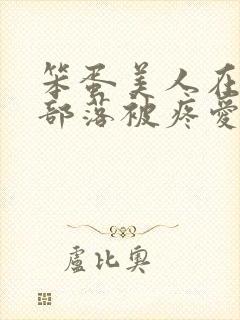 笨蛋美人在
部落被疼愛
盧比奧